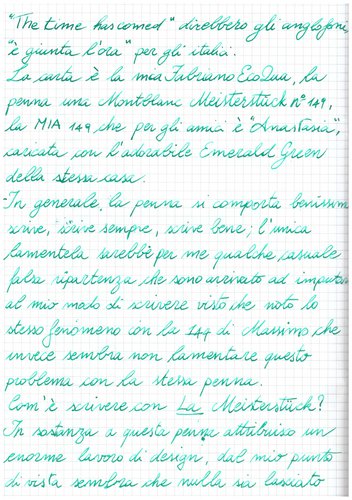 "The time hascomed" direbbero gli anglofoni,
"è giunta l'ora" per gli itali.
La carta è la mia Fabriano EcoQua, la
penna una Montblanc Meisterstück N° 149,
la MIA 149 che per gli amici è "Anastasia",
caricata con l'adorabile Emerald Green
della stessa casa.
In generale, la penna si comporta benissim
scrive, scrive sempre, scrive bene; l'unica
lamentela sarebbe per me qualche casuale
falsa ripartenza che sono arrivato ad imputar
al mio modo di scrivere visto che noto lo
stesso fenomeno con la 147 di Massimo che
invece sembra non lamentare questo
problema con la stessa penna.
Com'è scrivere con La Meisterstück?
In sostanza a questa penna attribuisco un
enorme lavoro di design, dal mio punto
di vista sembra che nulla sia lasciato